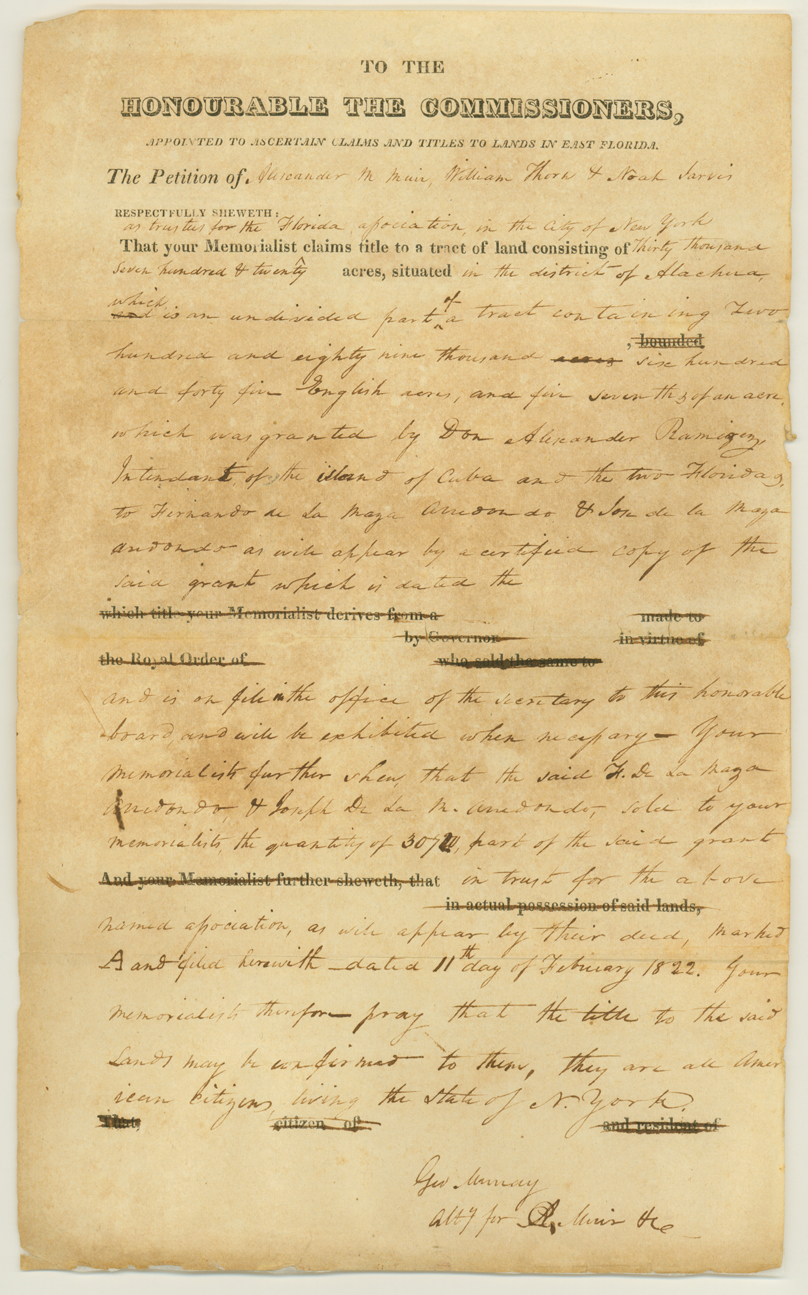 TO THE
HONOURABLE THE COMMISSIONERS,
APPOINTED TO ASCERTAIN CLAIMS AND TITLES TO LANDS IN EAST FLORIDA.
The Petition of. Alexander M Muir, William Thorn & Noah Jarvis
RESPECTFULLY SHEWETH:
as trustes for the Florida association, in the City of New York
That your Memorialist claims title to a tract of land consisting of Thirty thousand
Seven hundred & twenty acres, situated in the district of Alachua,
which
is an undivided part of a tract containing Two
, bounded
hundred and eighty nine thousand acres six hundred
and forty five English acres, and five sevenths of an acre,
which was granted by Don Alexander Ramirez,
Intendant of the island of Cuba and the two Floridas,
to Fernando de La Maza Arredondo & Jose de la Maza
Arredondo as will appear by a certified copy of the
said grant which is dated the
which title your Memorialist derives from a made to
by Governor in virtue of
the Royal Order of who sold the same to
and is on file in the office of the secretary to this honorable
board, and will be exhibited when necessary – Your
Memorialists further shew, that the said F. De La Maza
Arredondo, & Joseph De La M. Arredondo, sold to your
memorialists, the quantity of part of the said grant
And your Memorialist further sheweth, that in trust for the above
in actual possession of said lands,
named association, as will appear by their deed, marked
A and filed herewith – dated 11th day of February 1822. Your
memorialists therefore pray that the title to the said
Lands may be confirmed to them, they are all Amer
ican Citizens, living the State of N. York.
That, citizen of and resident of
Geo Murray
Atty for A. Muir &c